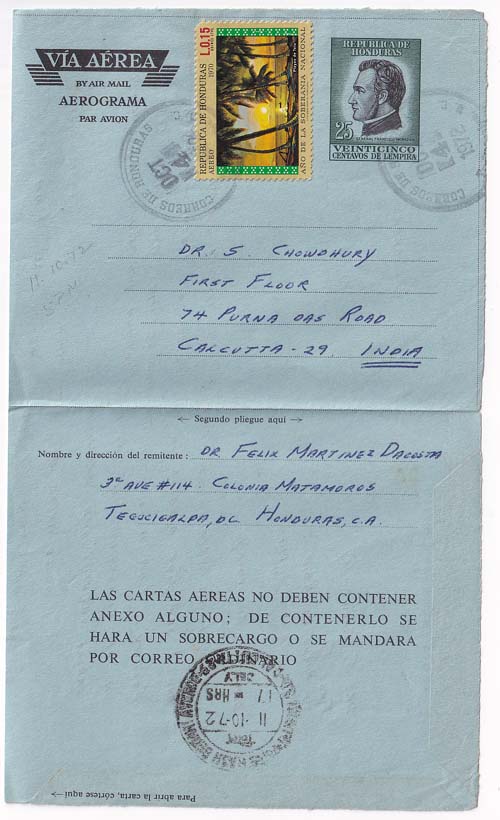 VÍA AÉREA
BY AIR MAIL
AEROGRAMA
PAR AVION
L0.15
REPUBLICA DE HONDURAS
AEREO
1970
AÑO DE LA SOBERANIA NACIONAL
REPUBLICA DE
HONDURAS
25
VEINTICINCO
CENTAVOS DE LEMPIRA
CORREOS DE HONDURAS
OCT
DR. S. CHOWDHURY
FIRST FLOOR
74 PURNA DAS ROAD
CALCUTTA - 29. INDIA
11.10.72
<— Segundo pliegue aquí —>
Nombre y dirección del remitente: DR FELIX MARTINEZ DACOSTA
3ª AVE #114. COLONIA MATAMOROS
TEGUCIGALPA, DC HONDURAS, C.A.
LAS CARTAS AEREAS NO DEBEN CONTENER
ANEXO ALGUNO; DE CONTENERLO SE
HARA UN SOBRECARGO O SE MANDARA
POR CORREO ORDINARIO
11-10-72
17 HRS
DELY
Para abrir la carta, córtese aquí —>